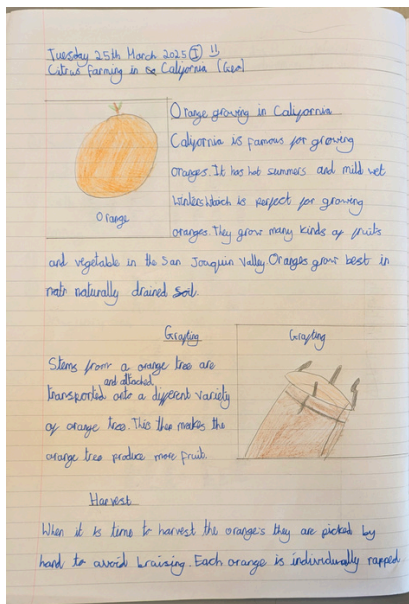 Tuesday 25th March 2025 I
Citrus Farming in California (Geo)
Orange growing in California
California is famous for growing
oranges. It has hot summers and mild wet
winters which is perfect for growing
oranges. They grow many kinds of fruits
Orange
and vegetable in the San Joaquin Valley. Oranges grow best in
natr naturally drained soil.
Grafting
Stems from a orange tree are
and attached
transported onto a different variety
of orange tree. This then makes the
orange tree produce more fruit.
Grafting
Harvest
When it is time to harvest the orange's they are picked by
hand to avoid braising. Each orange is individually rapped